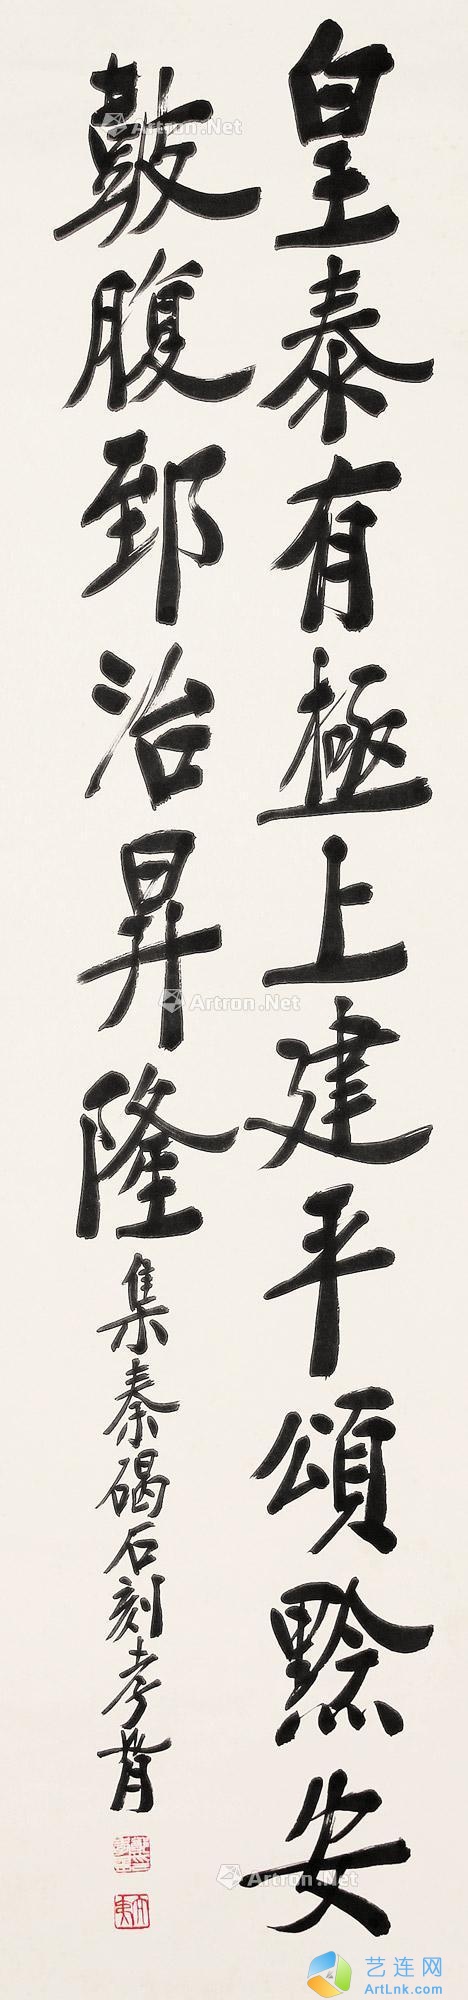 皇泰有極上建平頌黔安
鼓腹郅治昇隆
集秦碣石刻孝胥
Artron.Net
Artron.Net
Artron.Net
Artron.Net
艺连网
ArtLnk.com